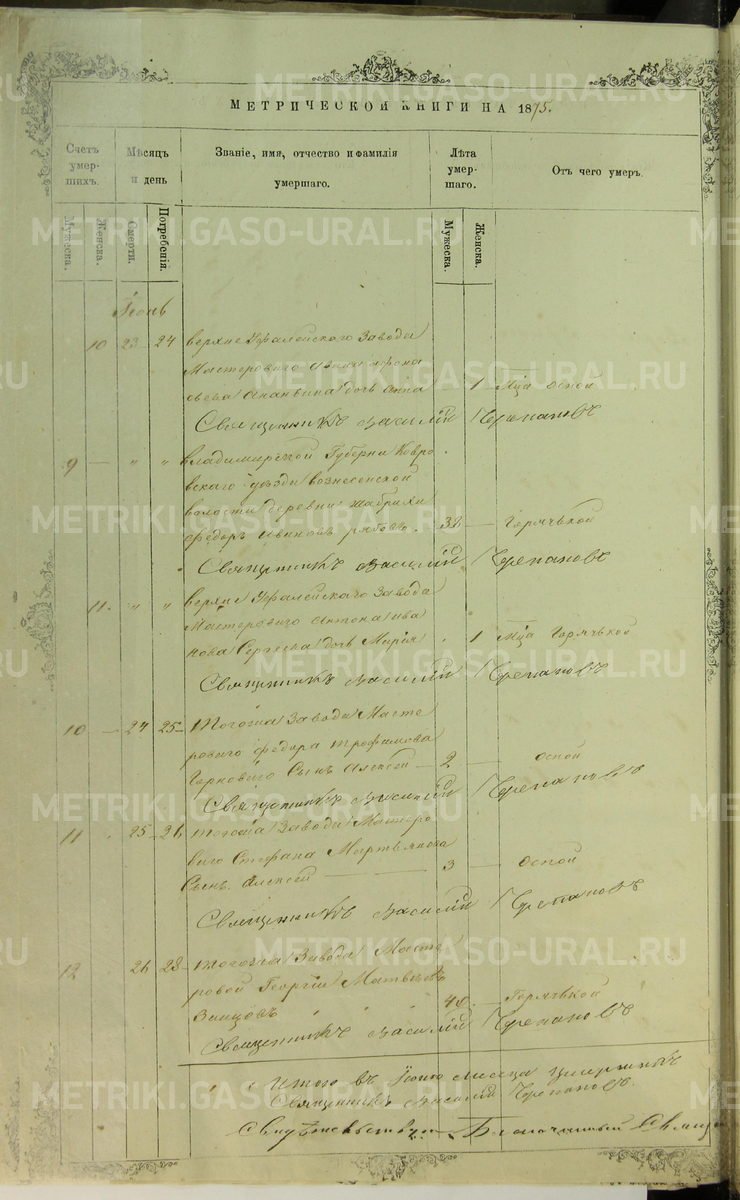 МЕТРИЧЕСКОЙ КНИГИ НА 1875.
Счетъ умершихъ.
Мѣсяцъ и день
Званіе, имя, отчество и фамилія умершаго.
Лѣта умершаго.
Отъ чего умеръ.
Мужеска.
Женска.
Смерти.
Погребенія.
Мужеска.
Женска.
Іюнь
10 23 24 верхне Уфалейского Завода
Мастероваго
дочь Анна 1 Мца оспой
Священникъ Василій Черепановъ
9 — " " владимирской Губерни Ковро
вского уѣзда вознесенской
волости деревни
федоръ 38 — Горячькой
Священникъ Василій Черепановъ
11. " " верхне Уфалейского Завода
Мастероваго Антона ива
нова Сергеева дочь Марія 1 Мца Горячькой
Священникъ Василій Черепановъ
10 — 24 25 Тогожа Завода Масте
роваго федора трофимова
Горноваго Сынъ Алексей — 2 — Оспой
Священникъ Василій Черепановъ
11 25 26 Тогожа Завода Мастеро
ваго Стефана Мартьянова
Сынъ Алексей — 3 — Оспой
Священникъ Василій Черепановъ
12 26 28 Тогожа Завода Масте
ровой Георгій Матвеевъ
Заицовъ " " " 40. — Горячькой
Священникъ Василій Черепановъ
Итого въ Іюнѣ месяца умершихъ
Священникъ Василій Черепановъ.
Благочинный
METRIKI.GASO-URAL.RU